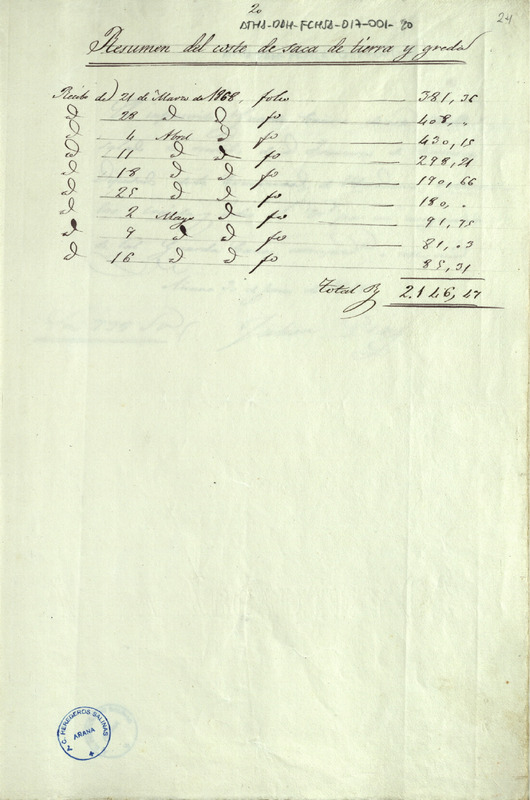 20
ATHA-DAH-FCHSA-017-001-20
24
Resumen del coste de saca de tierra y greda
Recibo del 21 de Marzo de 1868, folio 381,36
d 28 d d fo 408, „
d 4 Abril d fo 430,15
d 11 d d fo 298,21
d 18 d d fo 190,66
d 25 d d fo 180, „
d 2 Mayo d fo 91,75
d 9 d d fo 81,03
d 16 d d fo 85,31
Total 2.146,47
HEREDEROS SALINAS
ARANA